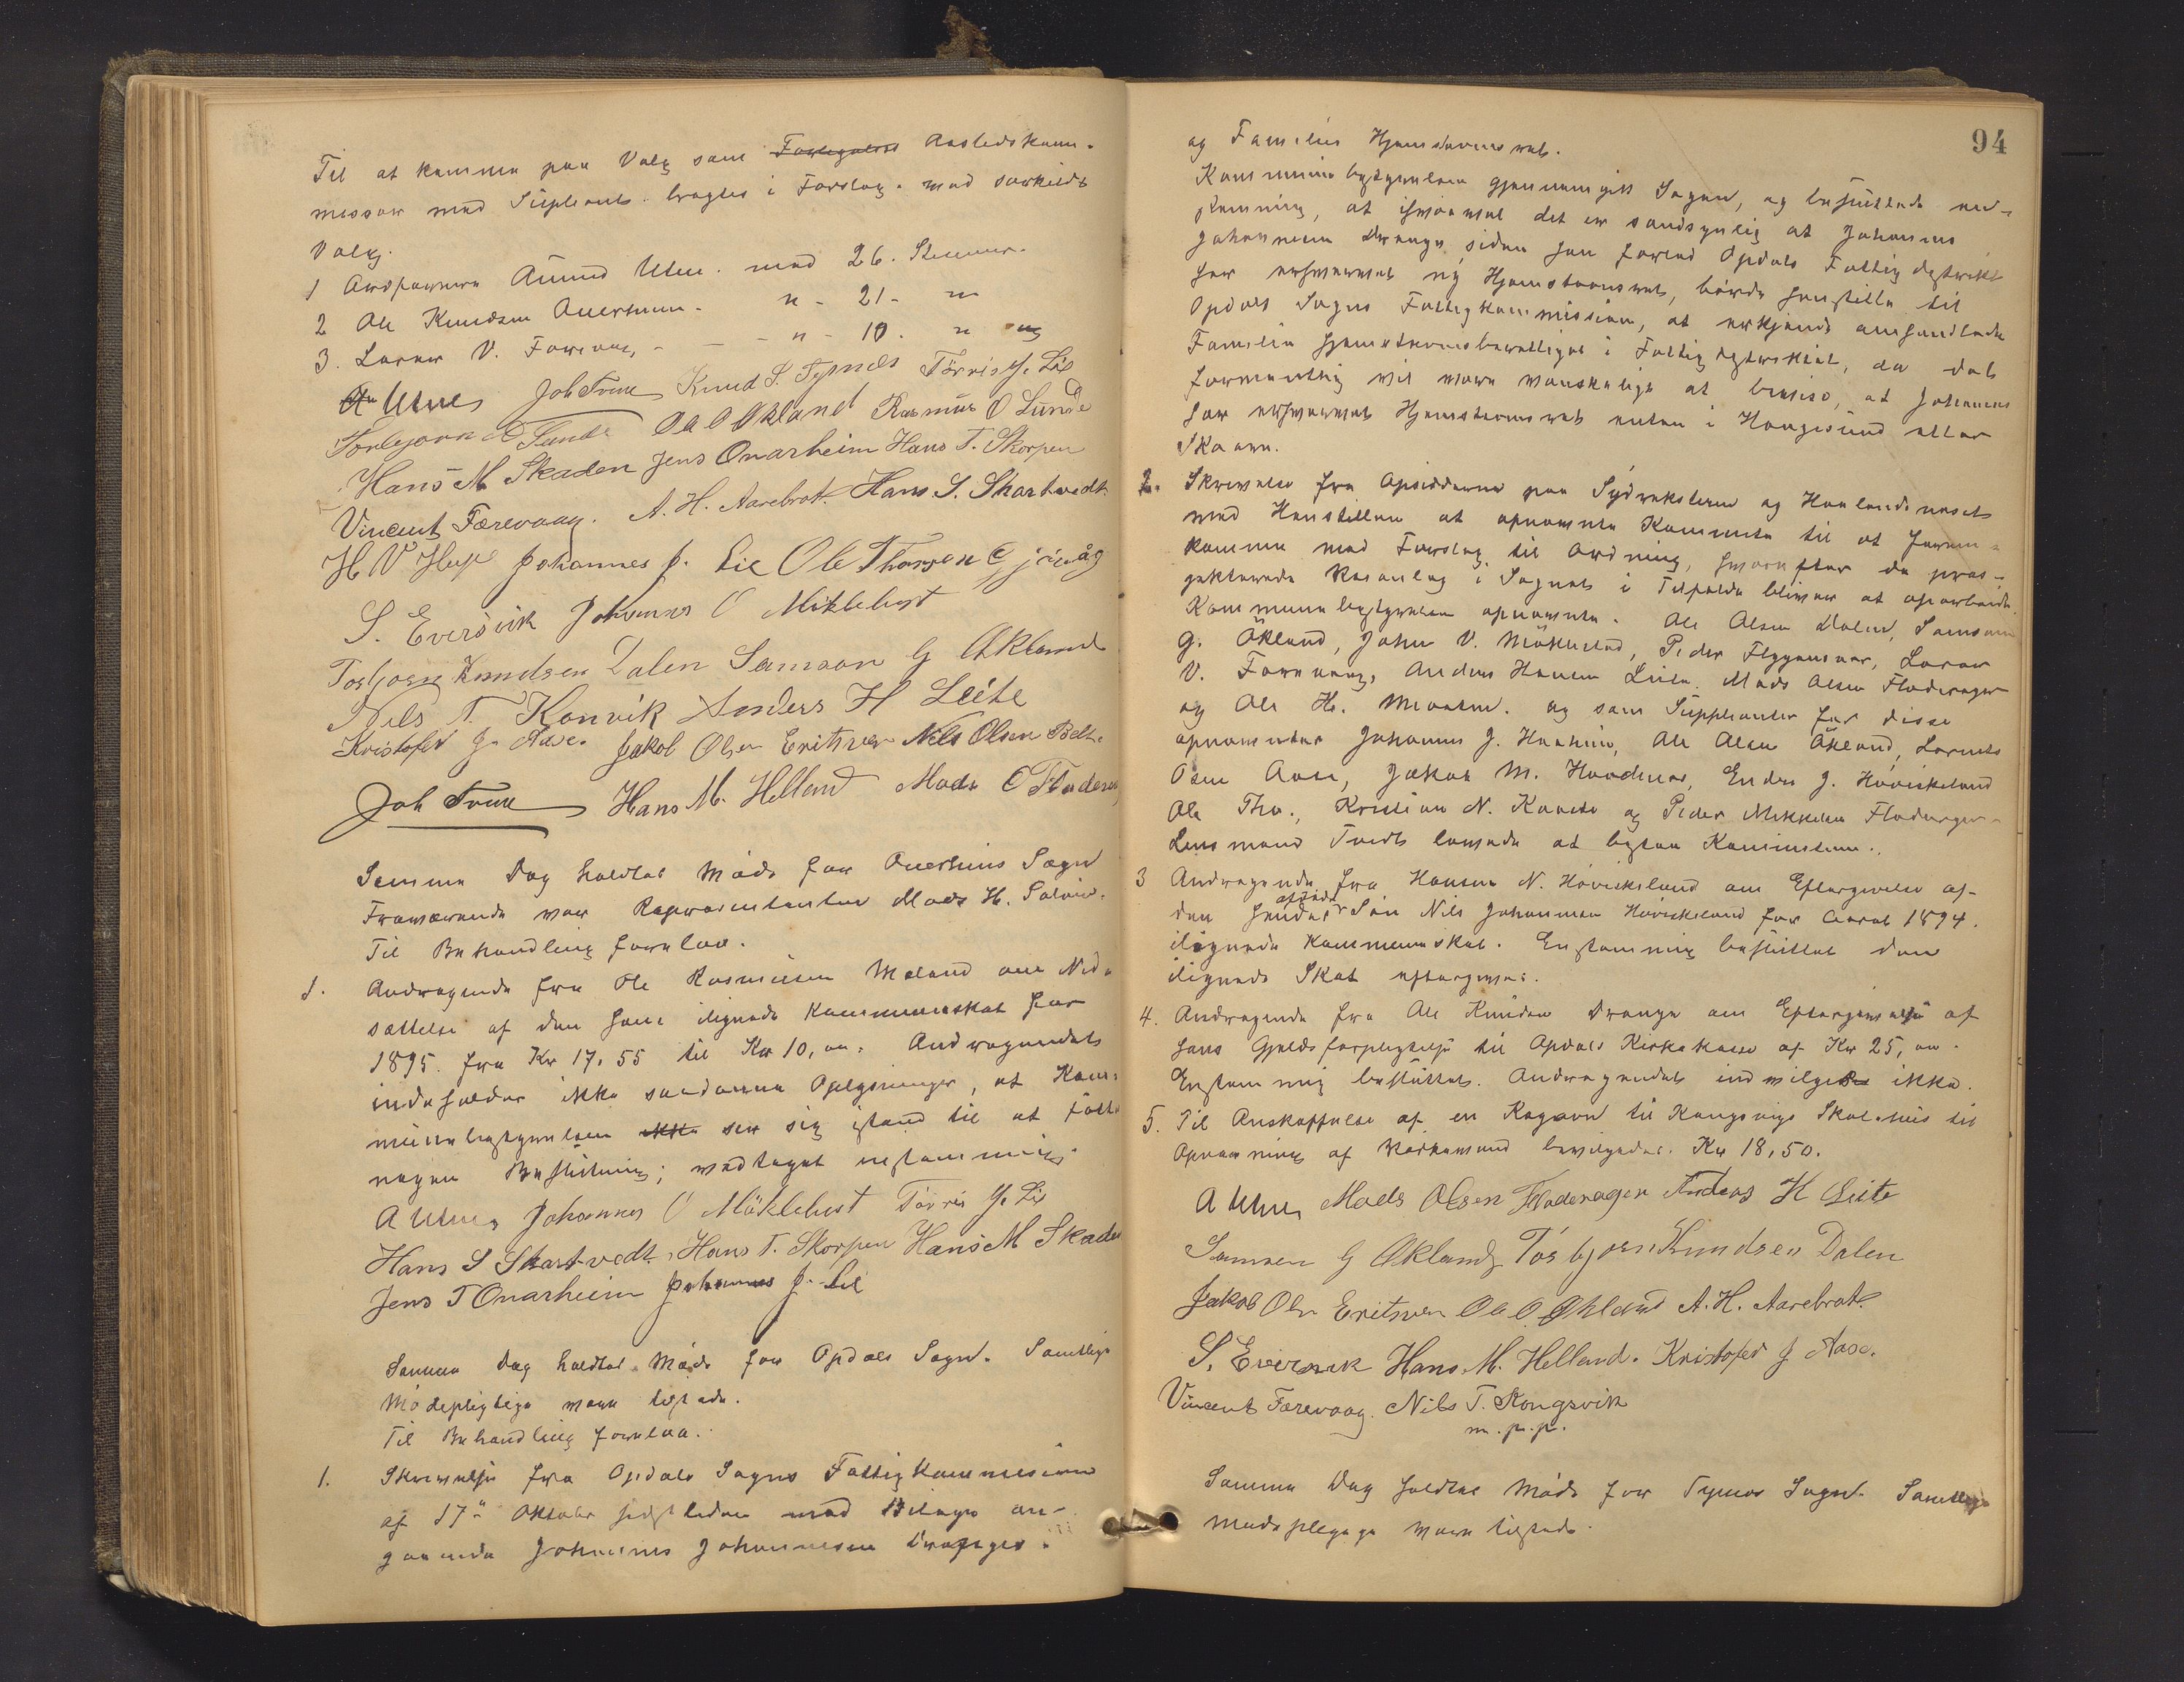 Til at komme paa Valg som Forligelses Aastedskom-
missær med Supleant bragtes i Forslag med særskildt
Valg.
1 Ordføreren Amund Utne. med 26. Stemmer.
2 Ole Knudsen Onerheim. " - 21 - "
3. Lærer V. Færevaag, - - - " - 10. " og
A Utne Joh Tvedt Knud S. Tysnes Törris J. Lie
Torbjørn O Lunde Ole O Økland Rasmus O Lunde
Hans M Skaden Jens Onarheim Hans T. Skorpen
Vincent Færevaag. A. H. Aarebrot. Hans S. Skartvedt
H V Heye Johannes J. Lie Ole Thorsen Gjøvåg
S. Eversvik Johannes O Miklebust
Torbjørn Knudsen Dalen Samson G Økland
Nils T. Konvik Anders H Leite
Kristofer J. Aase. Jakob Olsen Eritsver Nils Olsen Belt.
Joh Tvedt Hans M. Helland Mads O Flader
Samme Dag holdtes Møde for Onerheims Sogn
Fraværende var Repræsentanten Mads H.
Til Behandling forelaa.
1. Andragende fra Ole Rasmusen Meland om Ned-
sættelse af den ham ilignede Kommuneskat for
1895. fra Kr 17,55 til Kr 10,00. Andragendet
indeholder ikke saadanne Oplysninger, at Kom-
munebestyrelsen ikke ser sig istand til at fatte
nogen Beslutning; vedtaget enstemmig.
A Utne Johannes O Miklebust Törris J. Lie
Hans S Skartvedt. Hans T. Skorpen Hans M Skaden
Jens T Onarheim Johannes J. Lie
Samme Dag holdtes Møde for Opdals Sogn. Samtlige
Mødepligtige vare tilstede.
Til Behandling forelaa.
1. Skrivelse fra Opdals Sogns Fattigkommission
af 17de Oktober sidstleden med Bilage an-
gaaende Johannes Johannesen Dranges
94
og Families Hjemstavnsret.
Kommunebestyrelsen gjennemgik Sagen, og besluttede en-
stemmig, at ihvorvel det er sandsynlig at Johannes
Johannesen Drange siden han forlod Opdals Fattigdistrikt
har erhvervet ny Hjemstavnsret, burde henstille til
Opdals Sogns Fattigkommission, at erkjende omhandlede
Familie hjemstavnsberettiget i Fattigdistriktet, da det
formentlig vil være vanskelige at bevise, at Johannes
har erhvervet Hjemstavnsret enten i Haugesund eller
Skaare.
2. Skrivelse fra Opsidderne paa Sydvekslerne og Haalandsneset
med Henstillen at opnævnte Kommite til at frem-
komme med Forslag til Ordning, hvorefter de pro-
jekterede Veianlæg i Sognet i Tilfælde bliver at oparbeide.
Kommunebestyrelsen opnævnte. Ole Olsen Dalen, Samson
G. Økland, John V. Möklestad, Peder Flygansvær, Lærer
V. Færevaag, Anders Hansen Leite, Mads Olsen Fladerager
og Ole Hs. Meaten. og som Suppleanter for disse
opnævntes Johannes J. Haaheim, Ole Olsen Økland, Lornts
Osen Aase, Jakob M. Hovdenes, Endre J. Hövikeland
Ole Tho., Kristian N. Kaarevi og Peder Mikkelsen Fladerager.
Lensmand Tvedt lovede at bistaa Kommiteen.
3 Andragende fra Hansine N. Hövikeland om Eftergivelse af-
den hendes afdøde Søn Nils Johannesen Hövikeland for Aaret 1894.
ilignede Kommuneskat. Enstemmig besluttet den
ilignede Skat eftergives.
4. Andragende fra Ole Knudsen Drange om Eftergivelse af
hans Gjeldsforpligtelse til Opdals Kirkekasse af Kr 25,00.
Enstemmig besluttet. Andragendet indvilges ikke.
5. Til Anskaffelse af en Kogeovn til Kongsvigs Skolehus til
Opvarming af Værksmed bevilgedes. Kr 18,50.
A Utne Mads Olsen Fladerager Anders H Leite
Samson G Økland, Torbjørn Knudsen Dalen
Jakob Olsn Eritsver Ole O. Økland A. H. Aarebrot.
S. Eversvik Hans M. Helland. Kristofer J Aase.
Vincent Færevaag. Nils T. Kongsvik
m.p.p.
Samme Dag holdtes Møde for Tysnes Sogn. Samtlige
Mødepligtige vare tilstede.